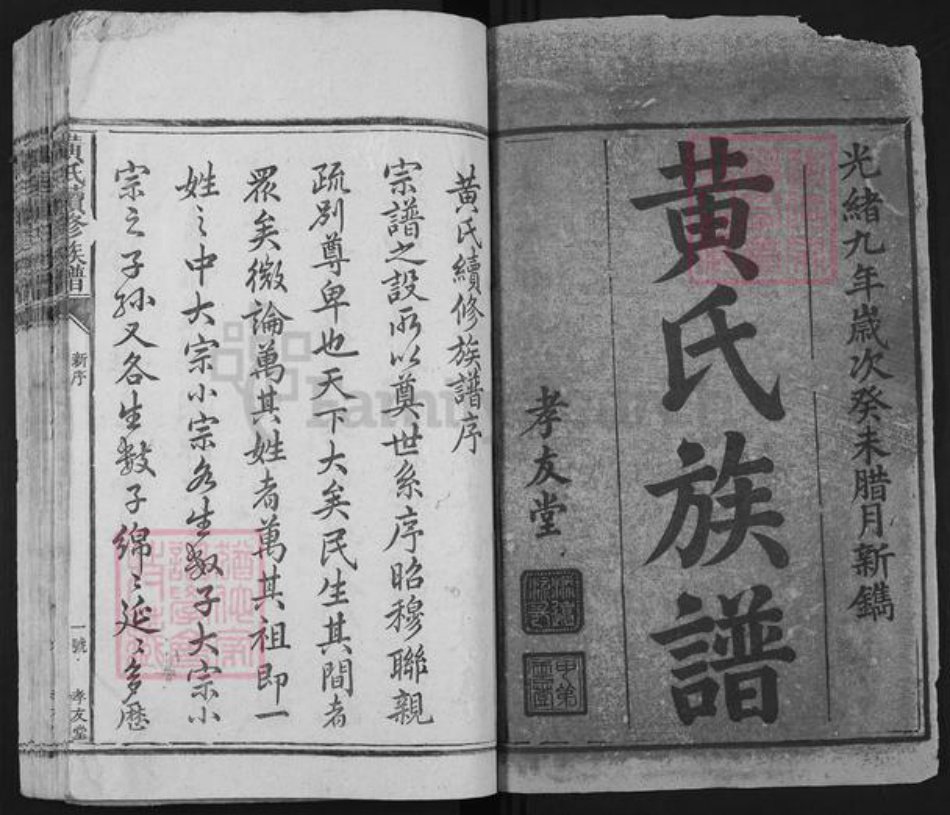 光緒九年歲次癸未腊月新鐫
黃氏族譜
孝友堂
黃氏續修族譜序
宗譜之設所以奠世系序昭穆聯親
疏别尊卑也天下大矣民生其間者
眾矣微論萬其姓者萬其祖即一
姓之中大宗小宗各生数子大宗小
宗之子孫又各生數子綿〻延〻多歷
黃氏續修族譜
新序
一號
孝友堂